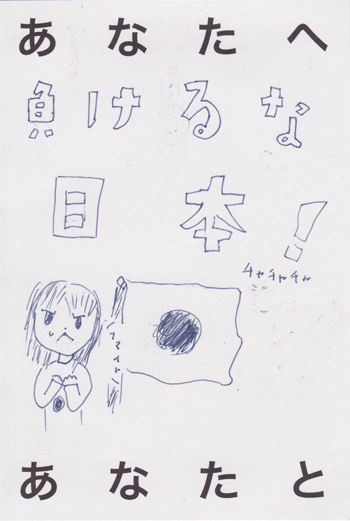 あなたへ
負けるな
日本!
チャチャチャ
ファイトン
あなたと